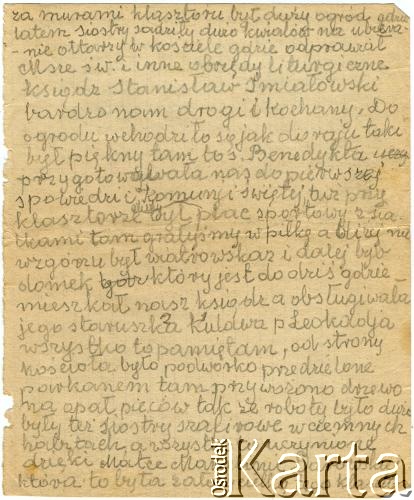 za murami klasztoru był duży ogród gdzie
latem siostry sadziły dużo kwiatów na ubiera-
nie ołtarzy w kościele gdzie odprawiał
Msze św. i inne obrzędy liturgiczne
ksiądz Stanisław Śmiałowski
bardzo nam drogi i kochany, Do
ogrodu wchodziło się jak do raju taki
był piękny tam to s. Benedykta
przygotowywała nas do pierwszej
spowiedzi i komuni świętej tuż przy
klasztorze był plac sportowy z siat-
kami tam graliśmy w piłkę a bliżej na
wzgórzu był wiatrowskaz i dalej był
domek który jest do dziś gdzie
mieszkał nasz ksiądz a obsługiwała
jego staruszka z Kuldwa p Leokadja
wszystko to pamiętam, od strony
kościoła było podwórko przedzielone
parkanem tam przywożono drzewo
na opał pieców tak że roboty było dużo
były też siostry szafirowe w ciemnych
habitach, a wszystko
dzięki Matce
która to była
Ośrodek
Karta